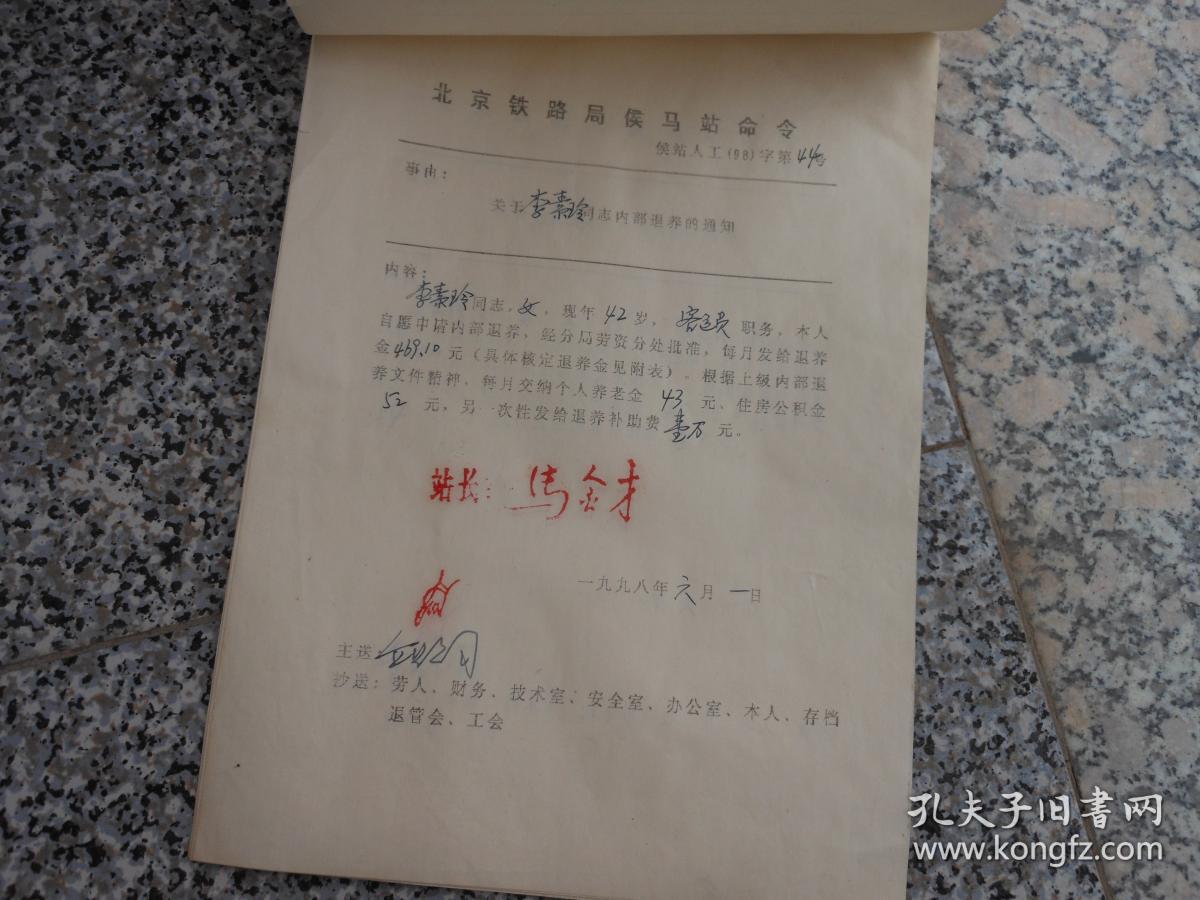 北京铁路局侯马站命令
侯站人工(98)字第44号
事由:
关于李素玲同志内部退养的通知
内容:
李素玲同志,女,现年42岁,客运员职务,本人
自愿申请内部退养,经分局劳资分处批准,每月发给退养
金469.10元(具体核定退养金见附表)。根据上级内部退
养文件精神,每月交纳个人养老金43元、住房公积金
52元,另一次性发给退养补助费壹万元。
站长:马金才
一九九八年六月一日
主送
抄送:劳人、财务、技术室、安全室、办公室、本人、存档
退管会、工会
孔夫子旧书网
www.kongfz.com